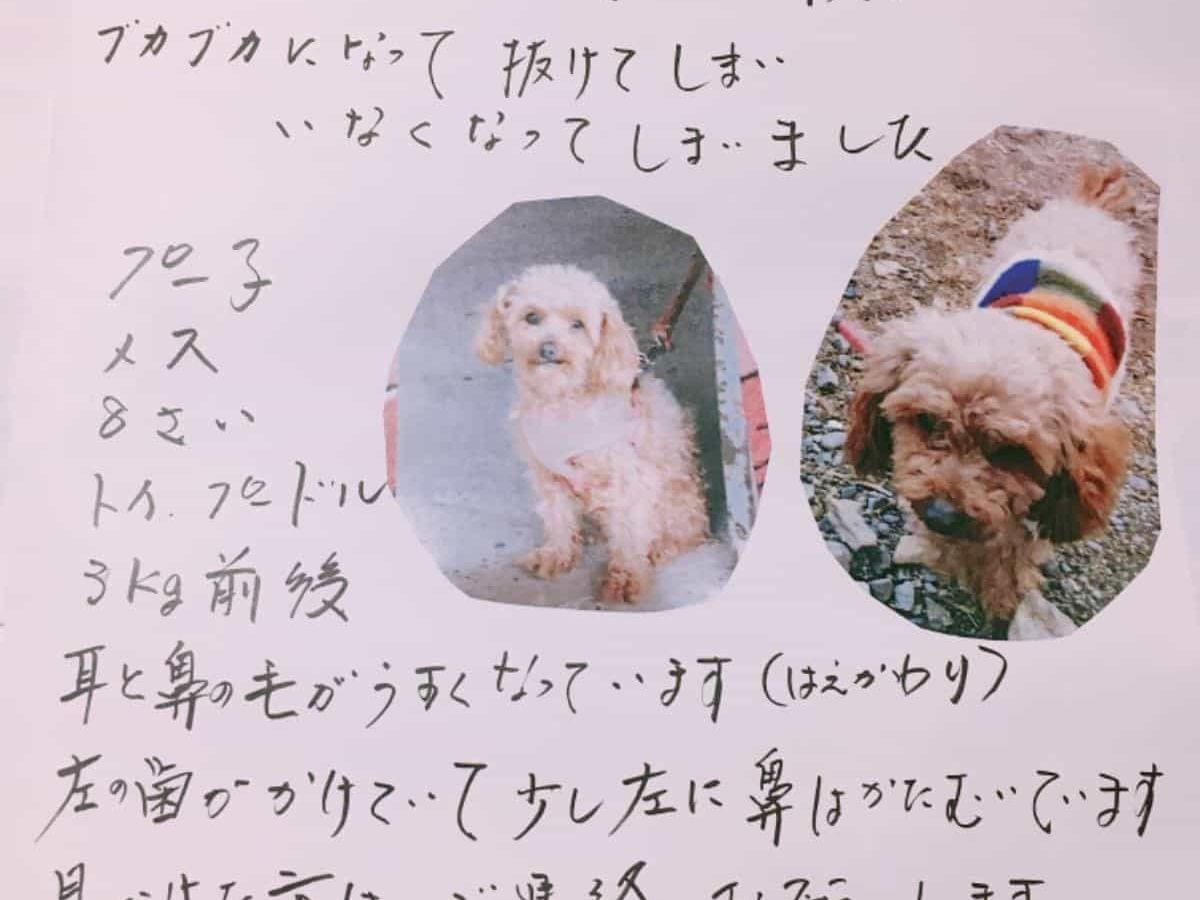 ブカブカになって 抜けてしまい
いなくなってしまいました
プー子
メス
8さい
トイ.プードル
3kg前後
耳と鼻の毛がうすくなっています(はえかわり)
左の歯がかけていて少し左に鼻はかたむいています